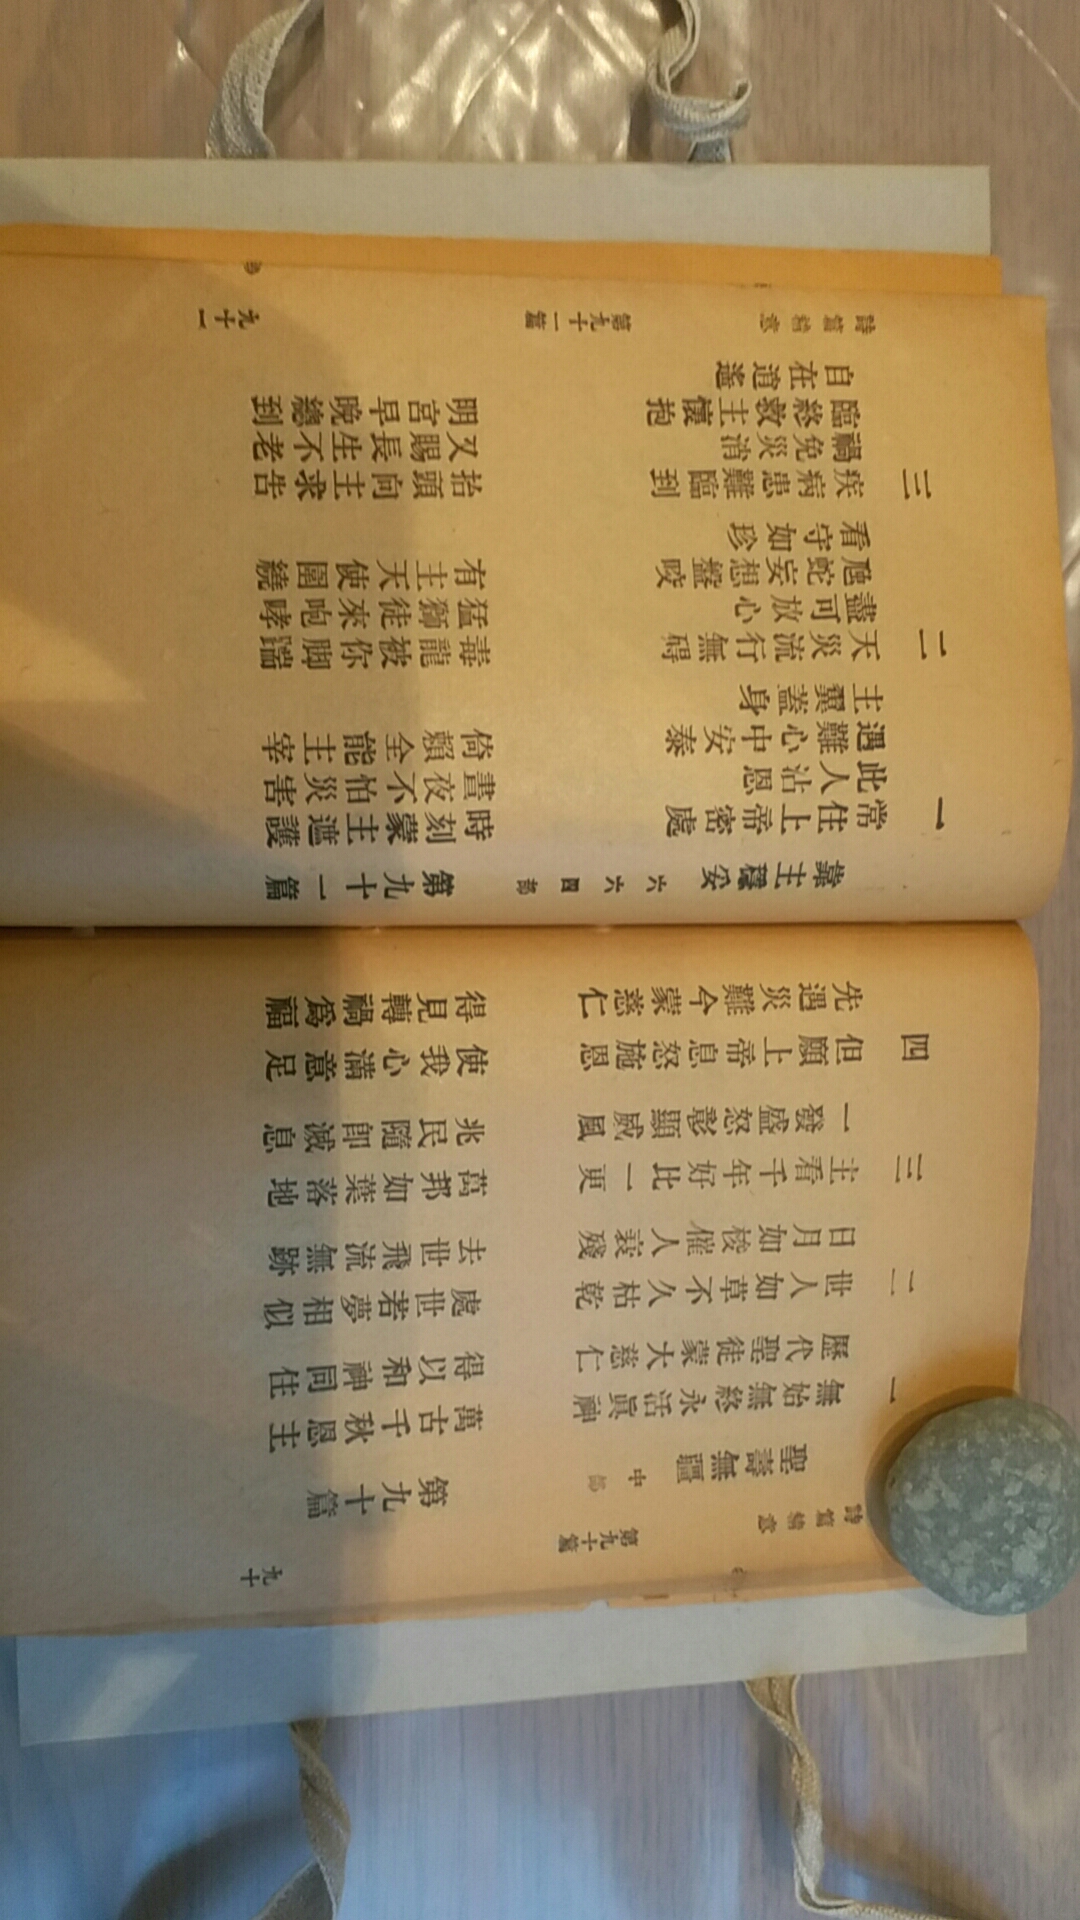 詩篇精意 第九十篇 九十
聖壽無疆 中部 第九十篇
一 無始無終永活眞神 萬古千秋恩主
歷代聖徒蒙大慈仁 得以和神同住
二 世人如草不久枯乾 處世若夢相似
日月如梭催人衰殘 去世飛流無跡
三 主看千年好比一更 萬邦如葉落地
一發盛怒彰顯威風 兆民隨即滅息
四 但願上帝息怒施恩 使我心滿意足
先遇災難今蒙慈仁 得見轉禍爲福
靠主穩妥 六六四部 第九十一篇
一 常住上帝密處 時刻蒙主遮護
此人沾恩 晝夜不怕災害
遇難心中安泰 倚賴全能主宰
主翼蓋身
二 天災流行無碍 毒龍被你脚踹
盡可放心 猛獅徒來咆哮
虺蛇妄想盤咬 有主天使圍繞
看守如珍
三 疾病患難臨到 抬頭向主求告
禍免災消 又賜長生不老
臨終救主懷抱 明宮早晚總到
自在逍遙
詩篇精意 第九十一篇 九十一